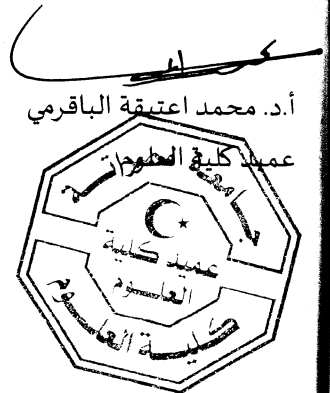 أ.د. محمد اعتيقة الباقرمي
عميد كلية العلوم
جامعة مصراتة
عميد كلية
العلوم
كلية العلوم